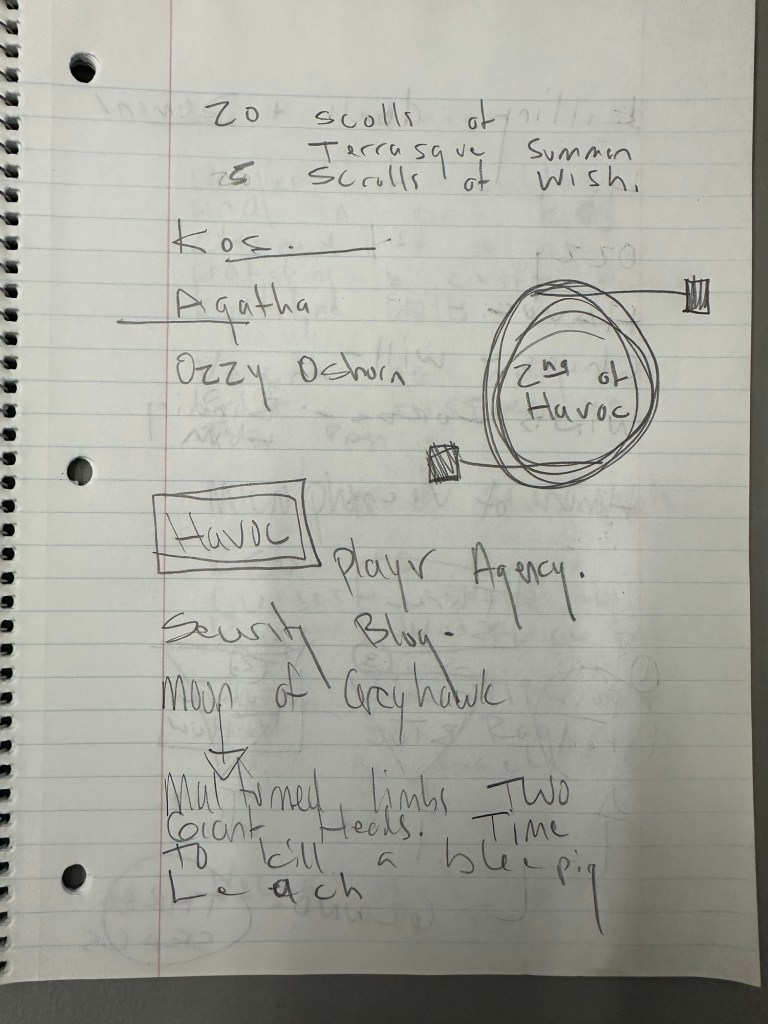 20 scolls of
Terrasque Summon
5 Scrolls of Wish.
Kos.
Agatha
Ozzy Osborn
2nd of
Havoc
Havoc
Playr Agency.
Security Blog.
Moon of Greyhawk
limbs TWO
Giant Heads. Time
To kill a
Leach